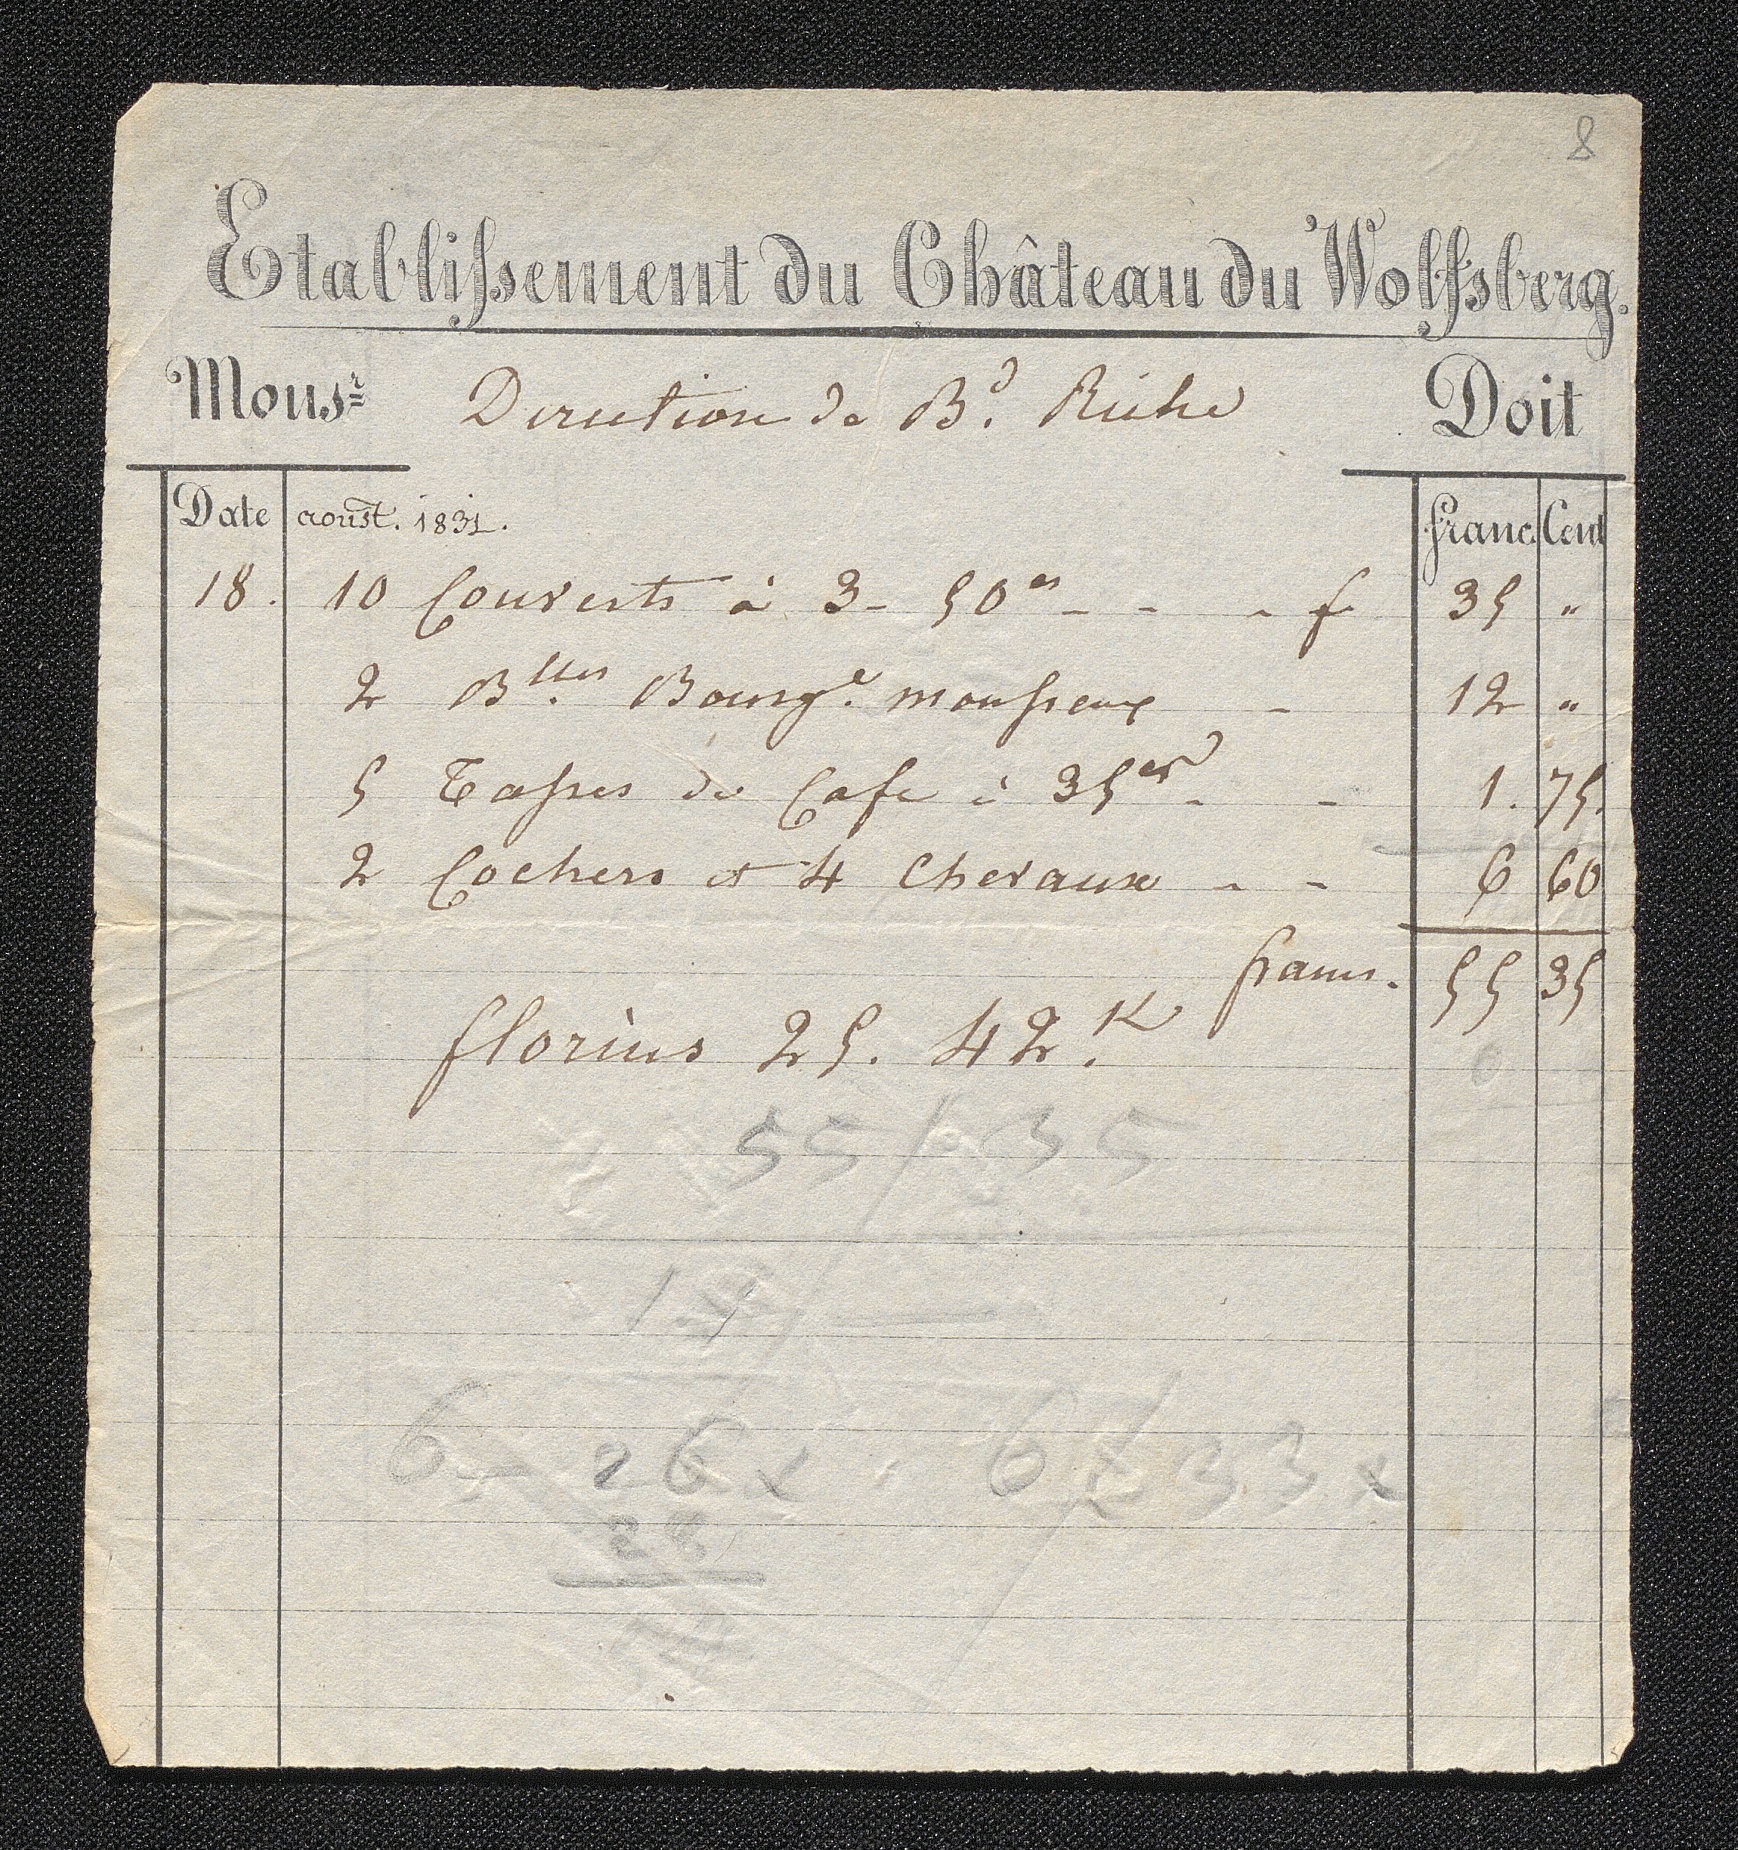 8
Etablissement du Château du Wolfsberg.
Mons.r Direction de B.d Doit
Date aoust. 1831. franc Cent
18. 10 Couverts à 3 - 50 es - - - f 35 "
2 B.lles Bourg.e mousseux - 12 "
5 Tasses de Cafe à 35 es - - 1. 75.
2 Cochers et 4 Chevaux - - 6 60
francs. 55 35
florins 25. 42. K
55/35
6 - 26 x 6 33 x
28